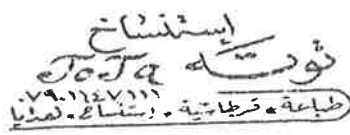 إستنساخ
توته ToTa
٠٧٩٠١١٤٧١١١
طباعة . قرطاسية . إستنساخ . هدايا